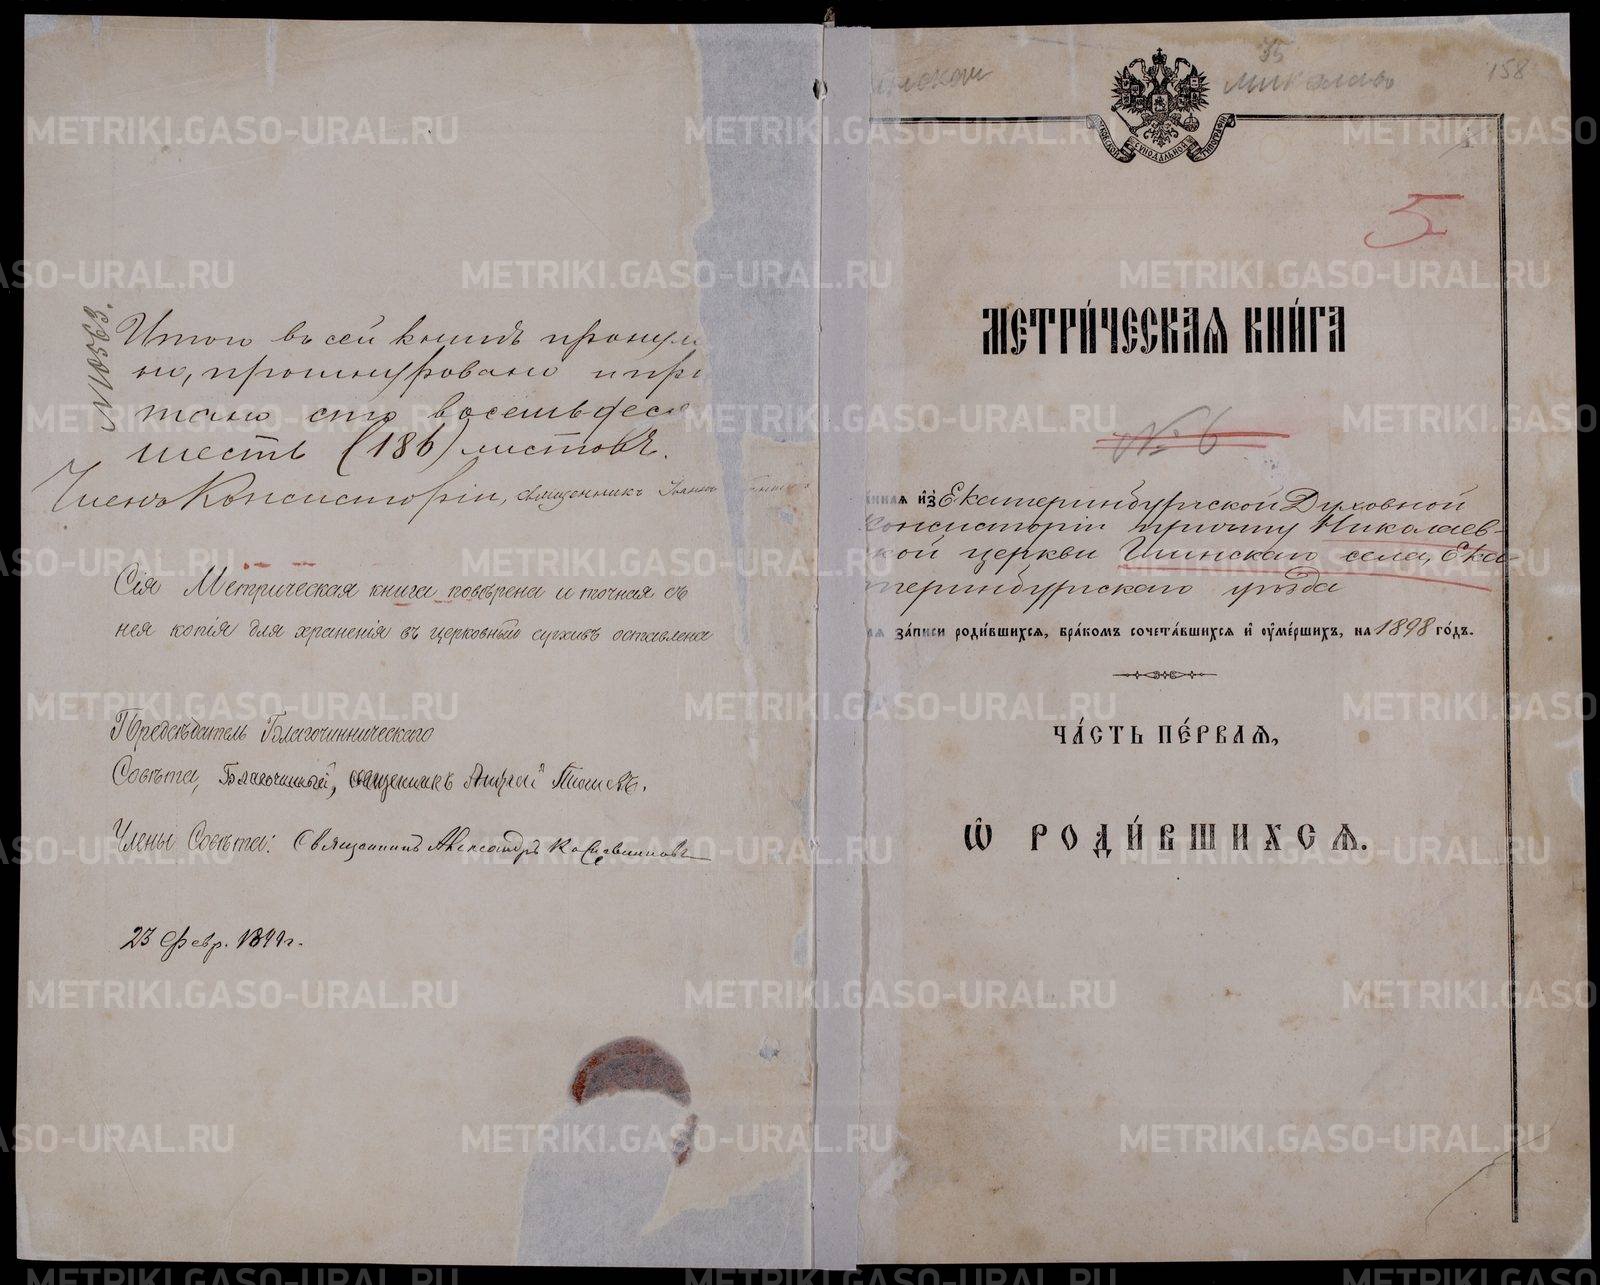 № 10563.
Итого въ сей книгѣ пронуме
но, прошнуровано и при
тано сто восемьдеся
шесть (186) листовъ.
Членъ Консисторіи, священникъ Іоаннъ
Сія Метрическая книга повѣрена и точная съ
нея копія для храненія въ церковный архивъ оставлена
Предсѣдатель Благочинническаго
Совѣта, Благочинный, священникъ Андрей
Члены Совѣта: Священникъ Александръ
23 Февр. 1899 г.
35
158
МОСКОВСКОЙ СѴНОДАЛЬНОЙ ТИПОГРАФІИ
5
МЕТРИ́ЧЕСКАЯ КНИ́ГА
№ 6
нная и҆з̾ Екатеринбургской Духовной
Консисторіи причту Николаев-
ской церкви Шинскаго села, Ека-
теринбургскаго уѣзда
ля за́писи роди́вшихся, бра́комъ сочета́вшихся и҆ ᲂу҆ме́ршихъ, на 1898 го́дъ.
ЧА́СТЬ ПЕ́РВАЯ,
Ѽ РОДИ́ВШИХСЯ.
METRIKI.GASO-URAL.RU